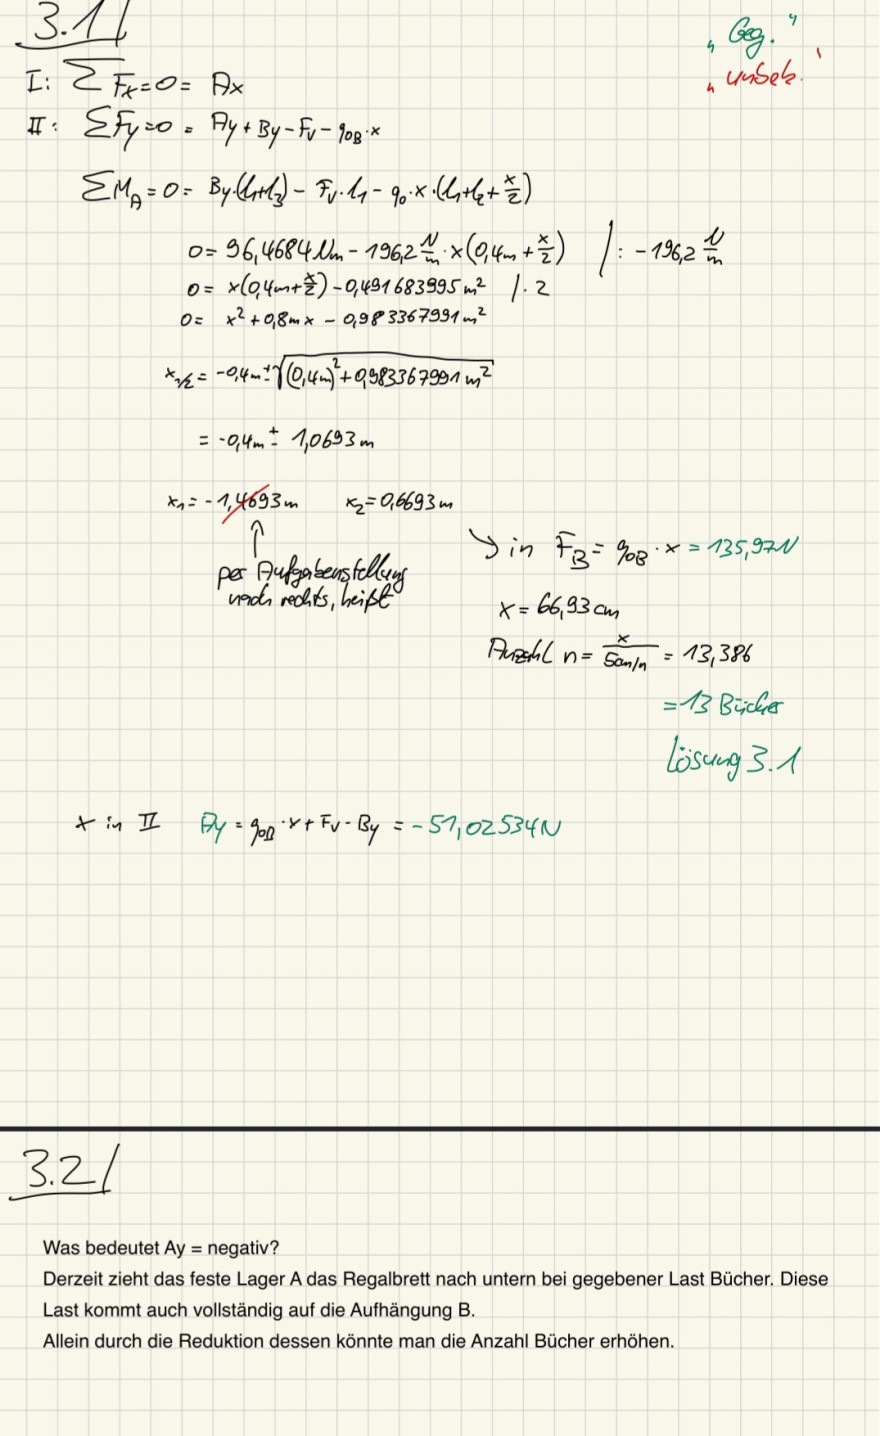 3.1/
„Geg."
„unbek.'
I: ΣFx=0= Ax
II: ΣFy=0 = Ay+By-Fv-q0B·x
ΣMA=0= By·(l1+l3) - Fv·l1 - q0·x·(l1+l2+x/2)
0= 96,4684Nm - 196,2 N/m ·x(0,4m+x/2) /: -196,2 N/m
0= x(0,4m+x/2) - 0,491683995m² /· 2
0= x² + 0,8mx - 0,983367991m²
x1/2= -0,4m±√((0,4m)²+0,983367991m²)
= -0,4m ± 1,0693m
x1= -1,4693m x2=0,6693m
↑
per Aufgabenstellung
nach rechts, heißt
↘ in FB= q0B · x = 135,97N
x= 66,93cm
Anzahl n= x/5cm/n = 13,386
=13 Bücher
Lösung 3.1
x in II Ay = q0B ·x+ Fv - By = -51,02534N
3.2/
Was bedeutet Ay = negativ?
Derzeit zieht das feste Lager A das Regalbrett nach untern bei gegebener Last Bücher. Diese
Last kommt auch vollständig auf die Aufhängung B.
Allein durch die Reduktion dessen könnte man die Anzahl Bücher erhöhen.